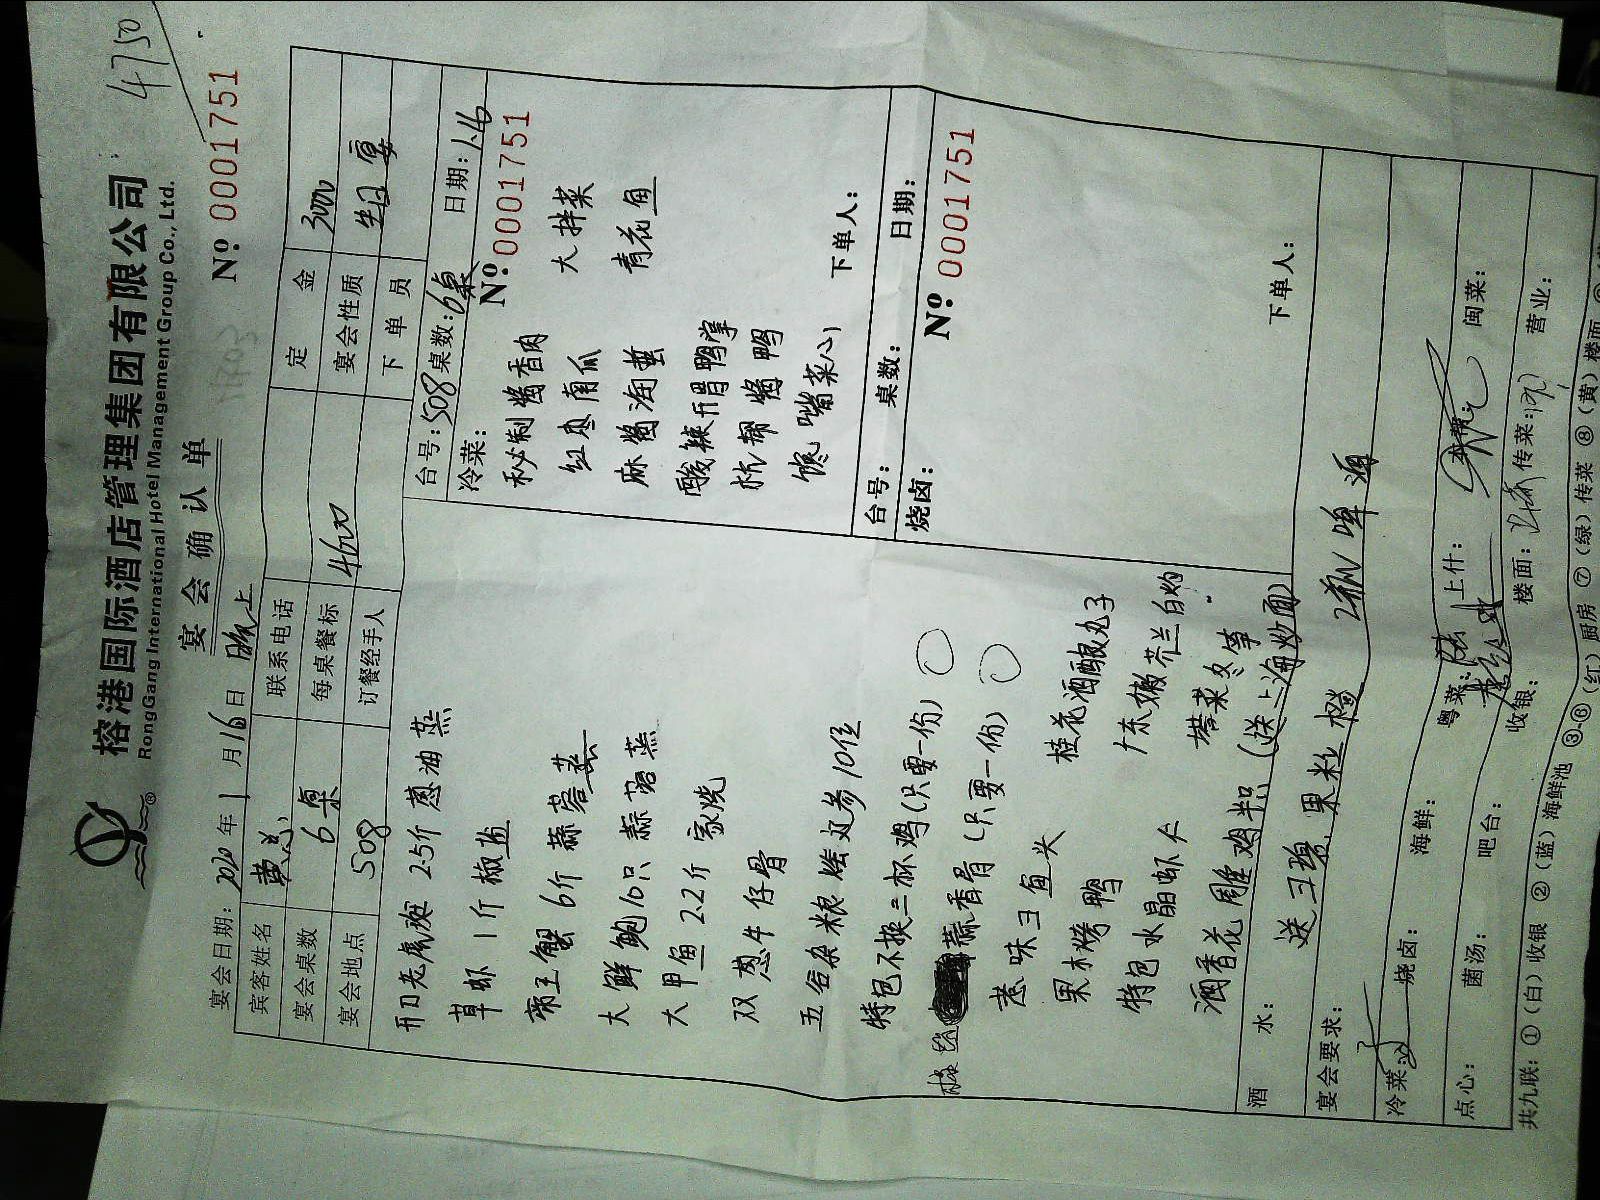 4750
榕港国际酒店管理集团有限公司
RongGang International Hotel Management Group Co., Ltd.
宴会确认单
№ 0001751
宴会日期: 2020 年 1 月 16 日 晚上
宾客姓名 黄总 联系电话 定金 3000
宴会桌数 6桌 每桌餐标 4600 宴会性质 生日宴
宴会地点 508 订餐经手人 下单员
开口老虎斑 2.5斤 葱油蒸
草虾 1斤 椒盐
帝王蟹 6斤 蒜蓉蒸
大鲜鲍10只 蒜蓉蒸
大甲鱼 2.2斤 家烧
双葱牛仔骨
五谷杂粮烩辽参10位
特色不换三杯鸡(只要一份)
蒜香骨(只要一份)
老味ヨ鱼头 桂花酒酿丸子
果木烤鸭 广东嫩芥兰白灼
特色水晶虾仁 塔菜冬笋
酒香花雕鸡半只 (送上海炒面)
台号: 508 桌数: 6桌 日期: 1.16
冷菜: № 0001751
秘制酱香肉 大拌菜
红枣南瓜 青花鱼
麻酱海蜇
酸辣开胃鸭掌
杭帮酱鸭
馋嘴菜心
下单人:
台号: 桌数: 日期:
烧卤: № 0001751
下单人:
酒水:
宴会要求: 送 雪碧. 果粒橙 2瓶 啤酒
冷菜: 烧卤: 海鲜: 粤菜: 上什: 本帮: 闽菜:
点心: 菌汤: 吧台: 收银: 楼面: 传菜: 营业:
共九联: ①(白)收银 ②(蓝)海鲜池 ③-⑥(红)厨房 ⑦(绿)传菜 ⑧(黄)楼面